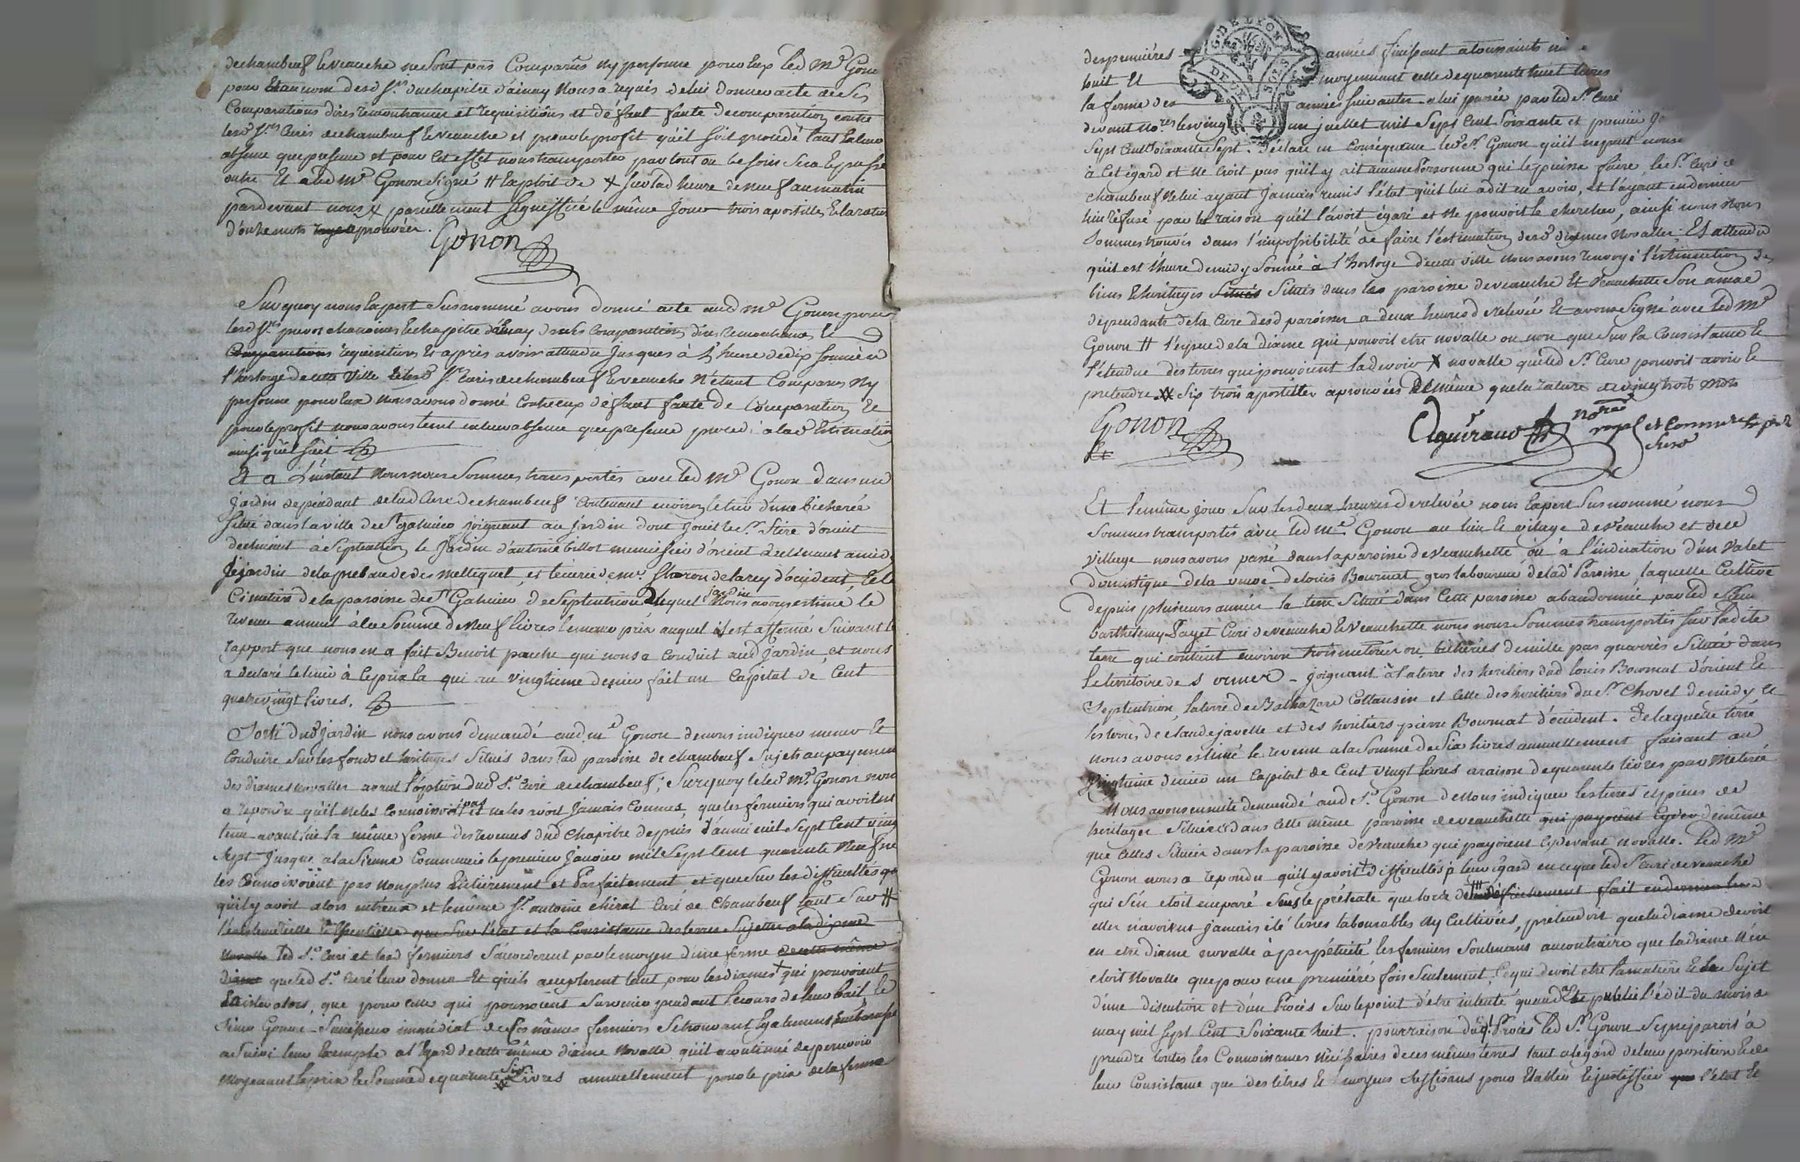 de chambeuf & veauche ne sont pas Comparûs ny personne pour eux led. Me Gonon
pour & au nom desd. Srs du chapitre d'ainay Nous a requis de lui donner acte de ses
Comparutions dires remontrances et requisitions et deffaut faute de comparution contre
lesd. Srs Curés de chambeuf & veauche et pour le profit qu'il soit procédé tant en leur
absence que presence et pour cet effet nous transporter par tout ou besoin sera
outre Et a led. Me Gonon signé # Exploit de X sur lad. heure de neuf au matin
pardevant nous X pareillement signiffiée le même jour trois apostilles & la rature
d'onze mots approuvée.
Gonon
Surquoy nous Expert susnommé avons donné acte aud. Me Gonon pour
lesd. Srs prevot chanoines & chapitre d'ainay de ses Comparution, dires remontrances, &
Comparutions requisitions Et après avoir attendu jusques à L'heure de dix sonnée à
l'horloge de cette Ville & lesd. Srs Curés de chambeuf & veauche N'étant Comparus Ny
personne pour eux nous avons donné contr'eux deffaut faute de Comparution, &
pour le profit nous avons tant en leur absence que presence procedé à la de Estimation
ainsi qu'il suit
Et a L'instant Nous nous Sommes transportés avec led. Me Gonon dans un
Jardin dependant de lad. Cure de chambeuf contenant environ le tier d'une bicherée
situé dans la ville de St galmier joignant au jardin dont jouit le Sr d'orient
declinant à Septentrion, le Jardin d'antoine billot menuisier d'orient declinant a midy
le jardin de la prebande des et l'écurie de mr. de larey d'occident, & le
Cimetiere de la paroisse de St Galmier de Septentrion Duquel jardin Nous avons estimé le
revenu annuel à la Somme de Neuf livres le meme prix auquel il est affermé Suivant le
rapport que nous en a fait Benoit pauche qui nous a conduit aud. jardin, et nous
a declaré le tenir à ce prix la qui au vingtieme denier fait un Capital de Cent
quatrevingt livres.
Sorti dud. jardin nous avons demandé aud. me Gonon de nous indiquer mener &
conduire sur les fonds et heritages Situés dans lad. paroisse de chambeuf sujets au payement
des dixmes novalles avant l'option dud. Sr Curé de chambeuf; Surquoy led. Me Gonon nous
a repondu qu'il ne les Connoissoit pas et ne les avoit Jamais Connues, que les fermiers qui avoient
tenu avant lui la même ferme des revenus dud. Chapitre depuis l'année mil Sept Cent vingt
Sept Jusque a la Sienne Commencée le premier Janvier mil Sept Cent quarante Neuf ne
les connoissoient pas non plus Entierement et Parfaitement et que sur les difficultés
qu'il y avoit alors entreux et le même Sr antoine Curé de Chambeuf tant sur #
que sur l'etat et la Consistance des terres Sujettes a la dixme
Novalle led. Sr Curé et lesd. fermiers s'accorderent par le moyen d'une ferme de cette même
dixme que led. Sr Curé leur donna Et qu'ils accepterent tant pour les dixmes + qui pouvoient
Exister alors, que pour celle qui pourroient Survenir pendant le cours de leur bail, &
Sieur Gonon Successeur immédiat de ses mêmes fermiers Se trouvant Egalement Embarassé
a suivi leur Exemple a l'Egard de cette même dixme Novalle qu'il a continué de percevoir
moyennant le prix & Somme de quarante six livres annuellement pour le prix de la ferme
des premieres années finissant a toussaints mil
huit Et moyennant celle de quarante huit livres
la ferme des années suivantes a lui passée par led. Sr Curé
devant nores le vingt un juillet mil Sept Cent Soixante et premier
Sept Cent Soixante Sept. Déclare en Consequence led. Sr Gonon qu'il ne peut nous
à Cet égard et Ne Croit pas qu'il y ait aucune Personne qui le puisse faire, le Sr Curé de
chambeuf Ne lui ayant Jamais remis l'état qu'il lui a dit en avoir, et l'ayant en dernier
lieu refusé par la raison qu'il l'avoit égaré et Ne pouvoit le chercher, ainsi nous Nous
Sommes trouvés dans l'impossibilité de faire l'estimation desd. dixmes Novalles, Et attendu
qu'il est l'heure de midy Sonnée à l'horloge de cette ville Nous avons renvoyé l'estimation des
biens & heritages Situés Situés dans les paroisse de veauche Et Veauchette Son annexe
dépendants de la Cure desd. paroisses a deux heures de relevée Et avons Signé avec led. Me
Gonon # l'espece de la dixme qui pouvoit etre novalle ou non que sur la Consistance &
l'étendue des terres qui pouvoient la devoir X novalle que led. Sr Curé pouvoit avoir &
pretendre XX Six trois apostilles aprouvées De même que la rature de vingt trois Mots
Gonon
Aguiraud nore royal et Commissaire
Et le même jour Sur les deux heures de relevée nous Expert Susnommé nous
Sommes transportés avec led. me Gonon au lieu & vilage de veauche et de ce
village nous avons passé dans la paroisse de Veauchette où à l'indication d'un Valet
domestique de la veuve de Louis Bournat, gros laboureur de lad. Paroisse, laquelle Cultive
depuis plusieurs années la terre Située dans Cette paroisse abandonnée par led. Sieur
barthelemy Payet Curé de veauche & Veauchette nous nous Sommes transportés sur ladite
terre qui contient environ trois meterées ou bicherées de mille pas quarrés Située dans
le territoire de joignant à la terre des heritiers dud. louis Bournat d'orient &
Septentrion, la terre de Balthazard Collausin et celle des heritiers du Sr Chovet de midy &
les terres de claude javelle et des heritiers pierre Bournat d'occident. De laquelle terre
nous avons estimé le revenu a la Somme de Six livres annuellement faisant au
Vingtieme denier un Capital de Cent vingt livres a raison de quarante livres par Meterée
Nous avons ensuite demandé aud. Sr Gonon de Nous indiquer les terres especes de
heritages Situées dans cette même paroisse de veauchette qui payoient Cy devant de même
que celles Situées dans la paroisse de Veauche qui payoient Cy devant Novalle. led. Me
Gonon nous a repondu qu'il y avoit + difficultés a leur égard en ce que led. Sr Curé de veauche
qui s'en etoit emparé Sous le prétexte que lors du defrichement fait en dernier lieu
elles n'avoient jamais été terres labourables Ny Cultivées, prétendoit que la dixme devoit
en etre dixme novalle à perpétuité les fermiers Soutenans au contraire que la dixme N'en
etoit Novalle que pour une premiére fois Seulement, Ce qui devoit etre la matiere & le Sujet
d'une discution et d'un Procès Sur le point d'etre intenté quand fut publié l'édit du mois de
may mil Sept Cent Soixante huit. pour raison duql Procès led. Sr Gonon Se preparoit a
prendre toutes les Connoissances Nécessaires de ces mêmes terres tant a l'egard de leur position & de
leur Consistance que des titres & moyens suffisans pour Etablir & justiffier que l'état &